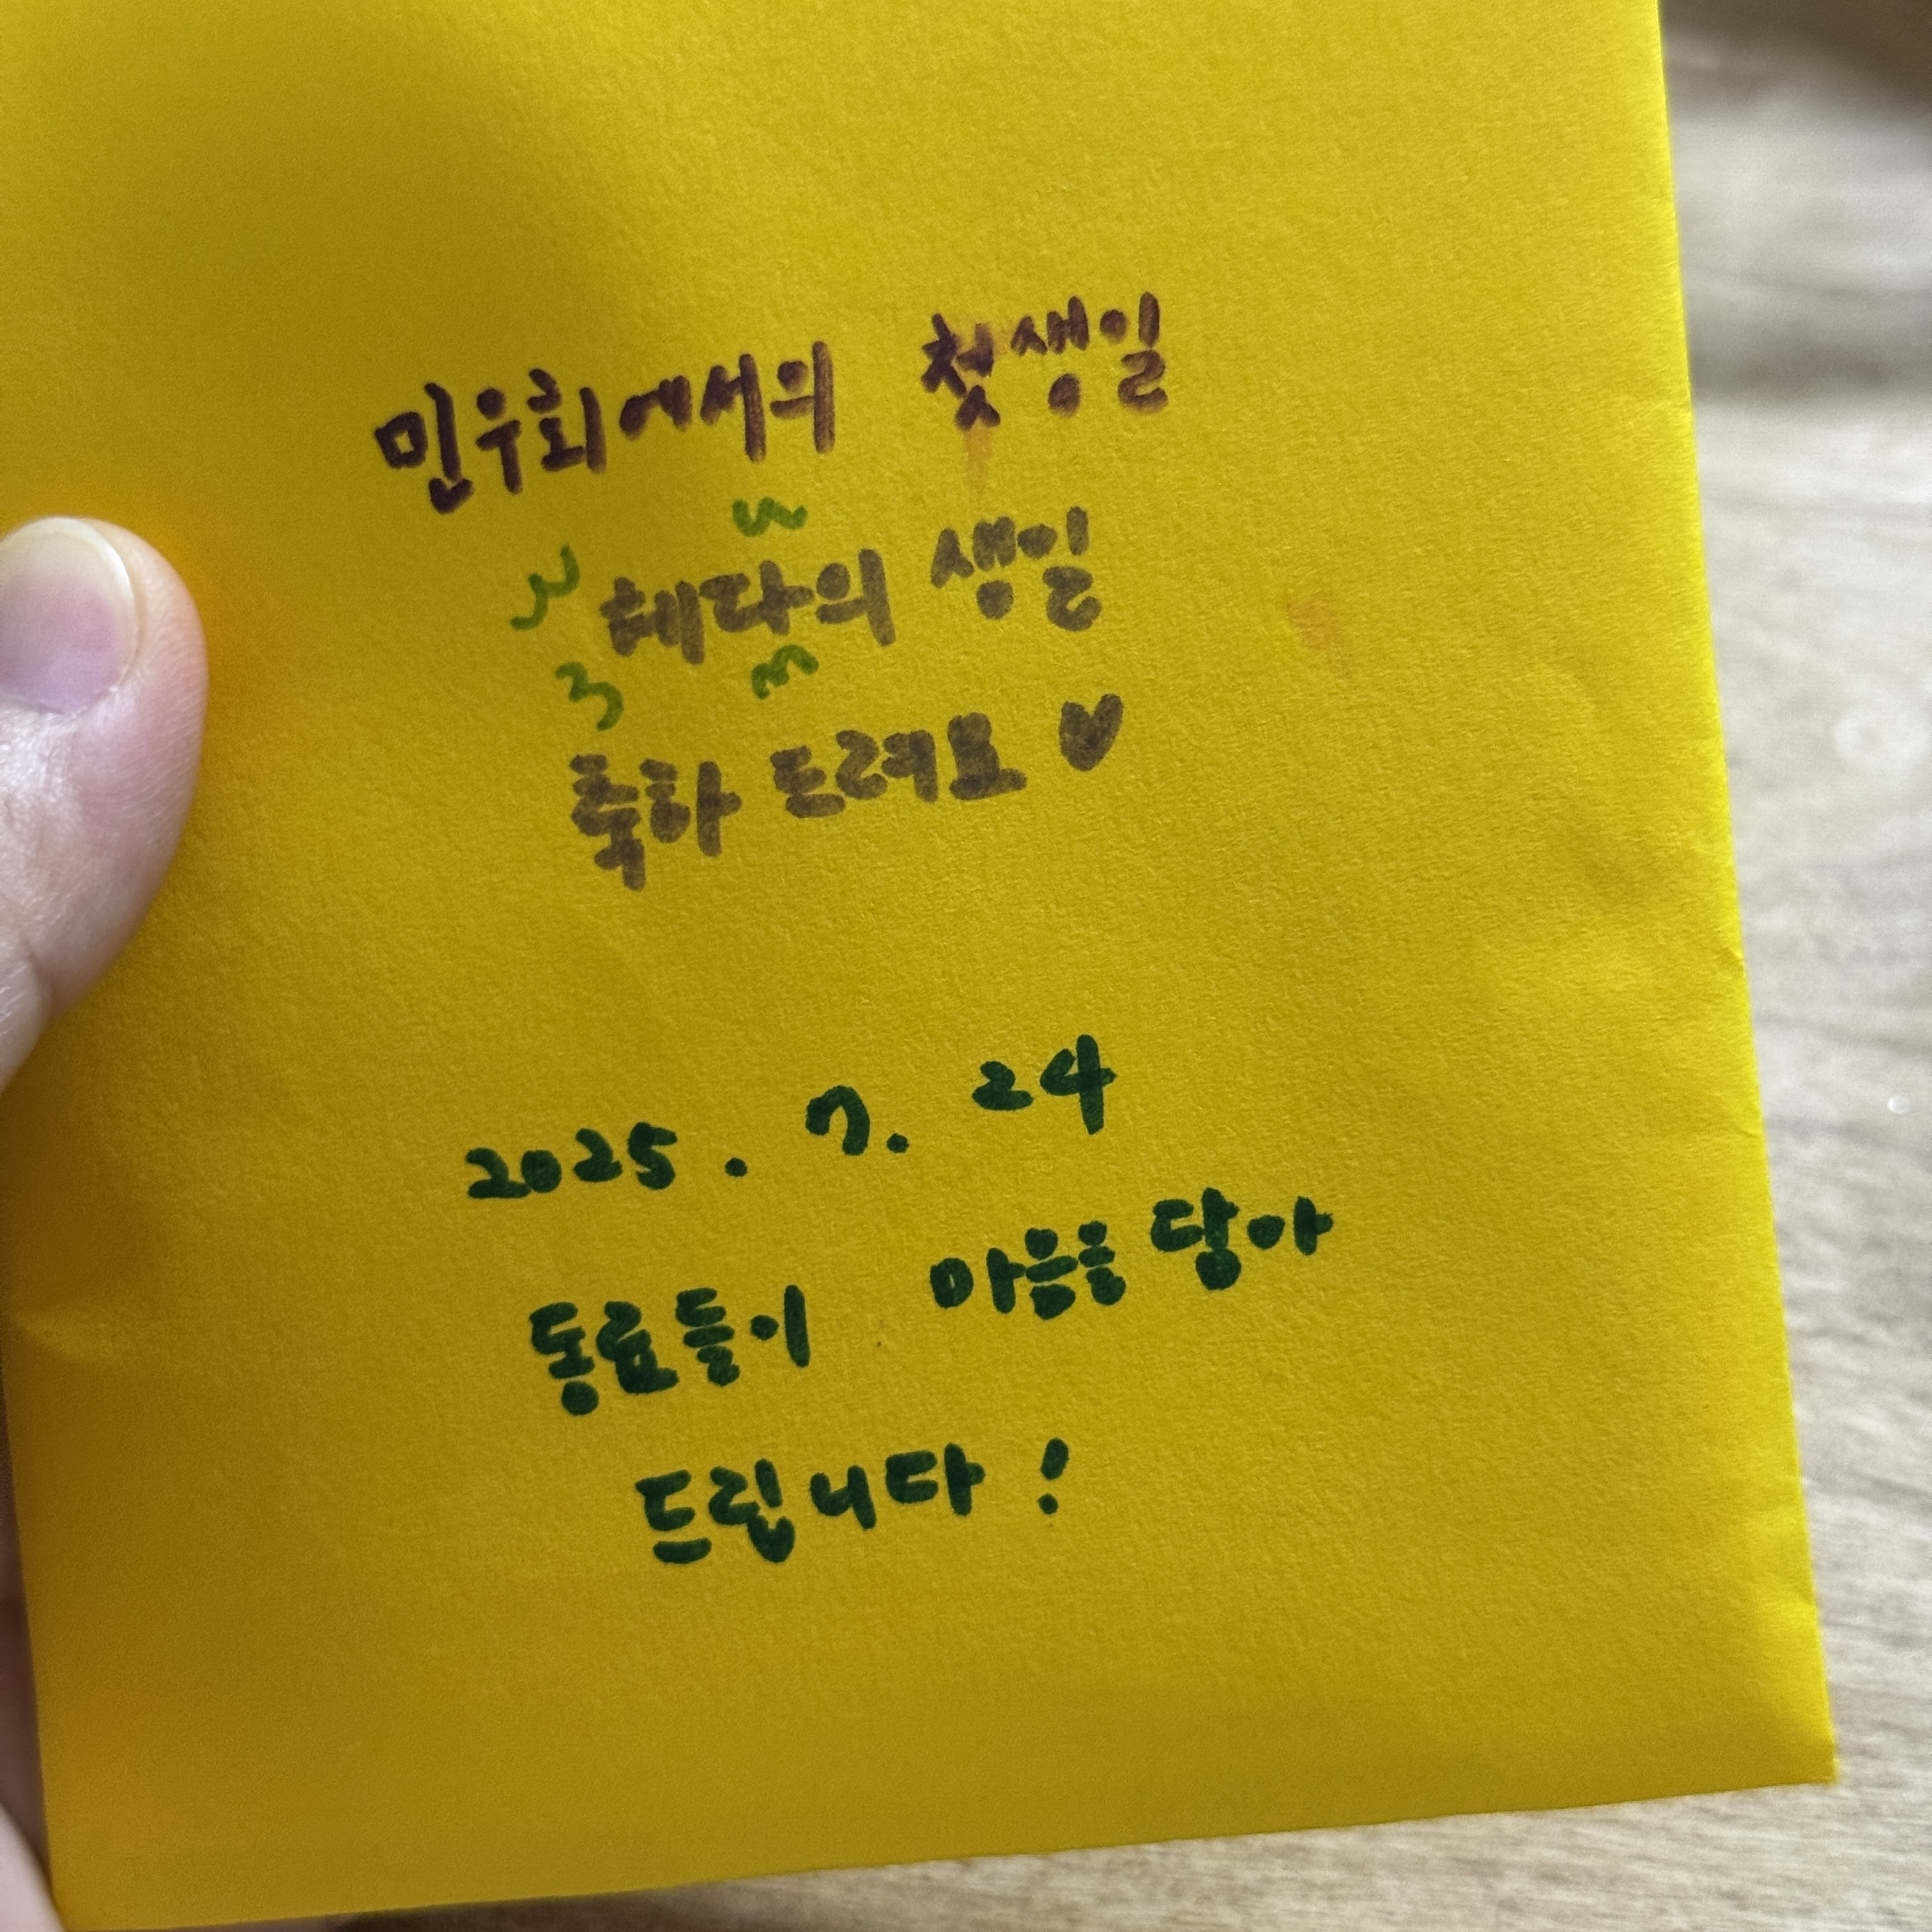 민우회에서의 첫생일
헤다의 생일
축하 드려요 ♥
2025. 7. 24
동료들이 마음을 담아
드립니다!